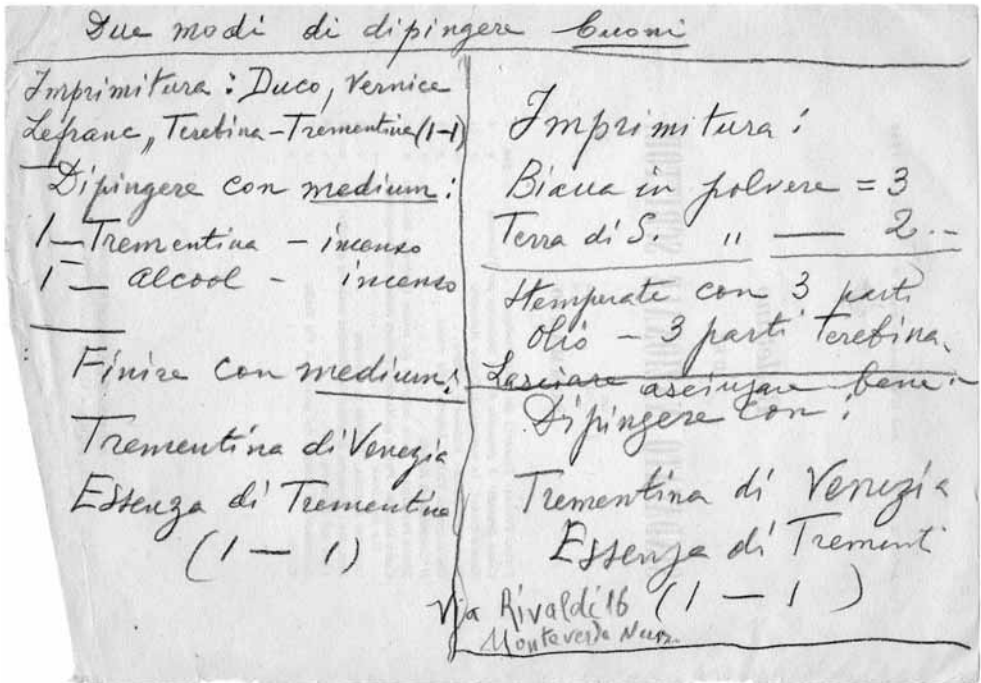 Due modi di dipingere buoni
Imprimitura : Duco, Vernice
Lefranc,, Terebina - Trementina (1-1)
Dipingere con medium :
1 — Trementina - incenso
1 — alcool - incenso
Finire con medium :
Trementina di Venezia
Essenza di Trementina
(1 — 1)
Imprimitura :
Biacca in polvere = 3
Terra di S. " — 2 --
Stemperate con 3 parti
olio - 3 parti Terebina.
Lasciare asciugare bene.
Dipingere con :
Trementina di Venezia
Essenza di Trementi
(1 — 1)
Via Rivaldi 16
Monteverde